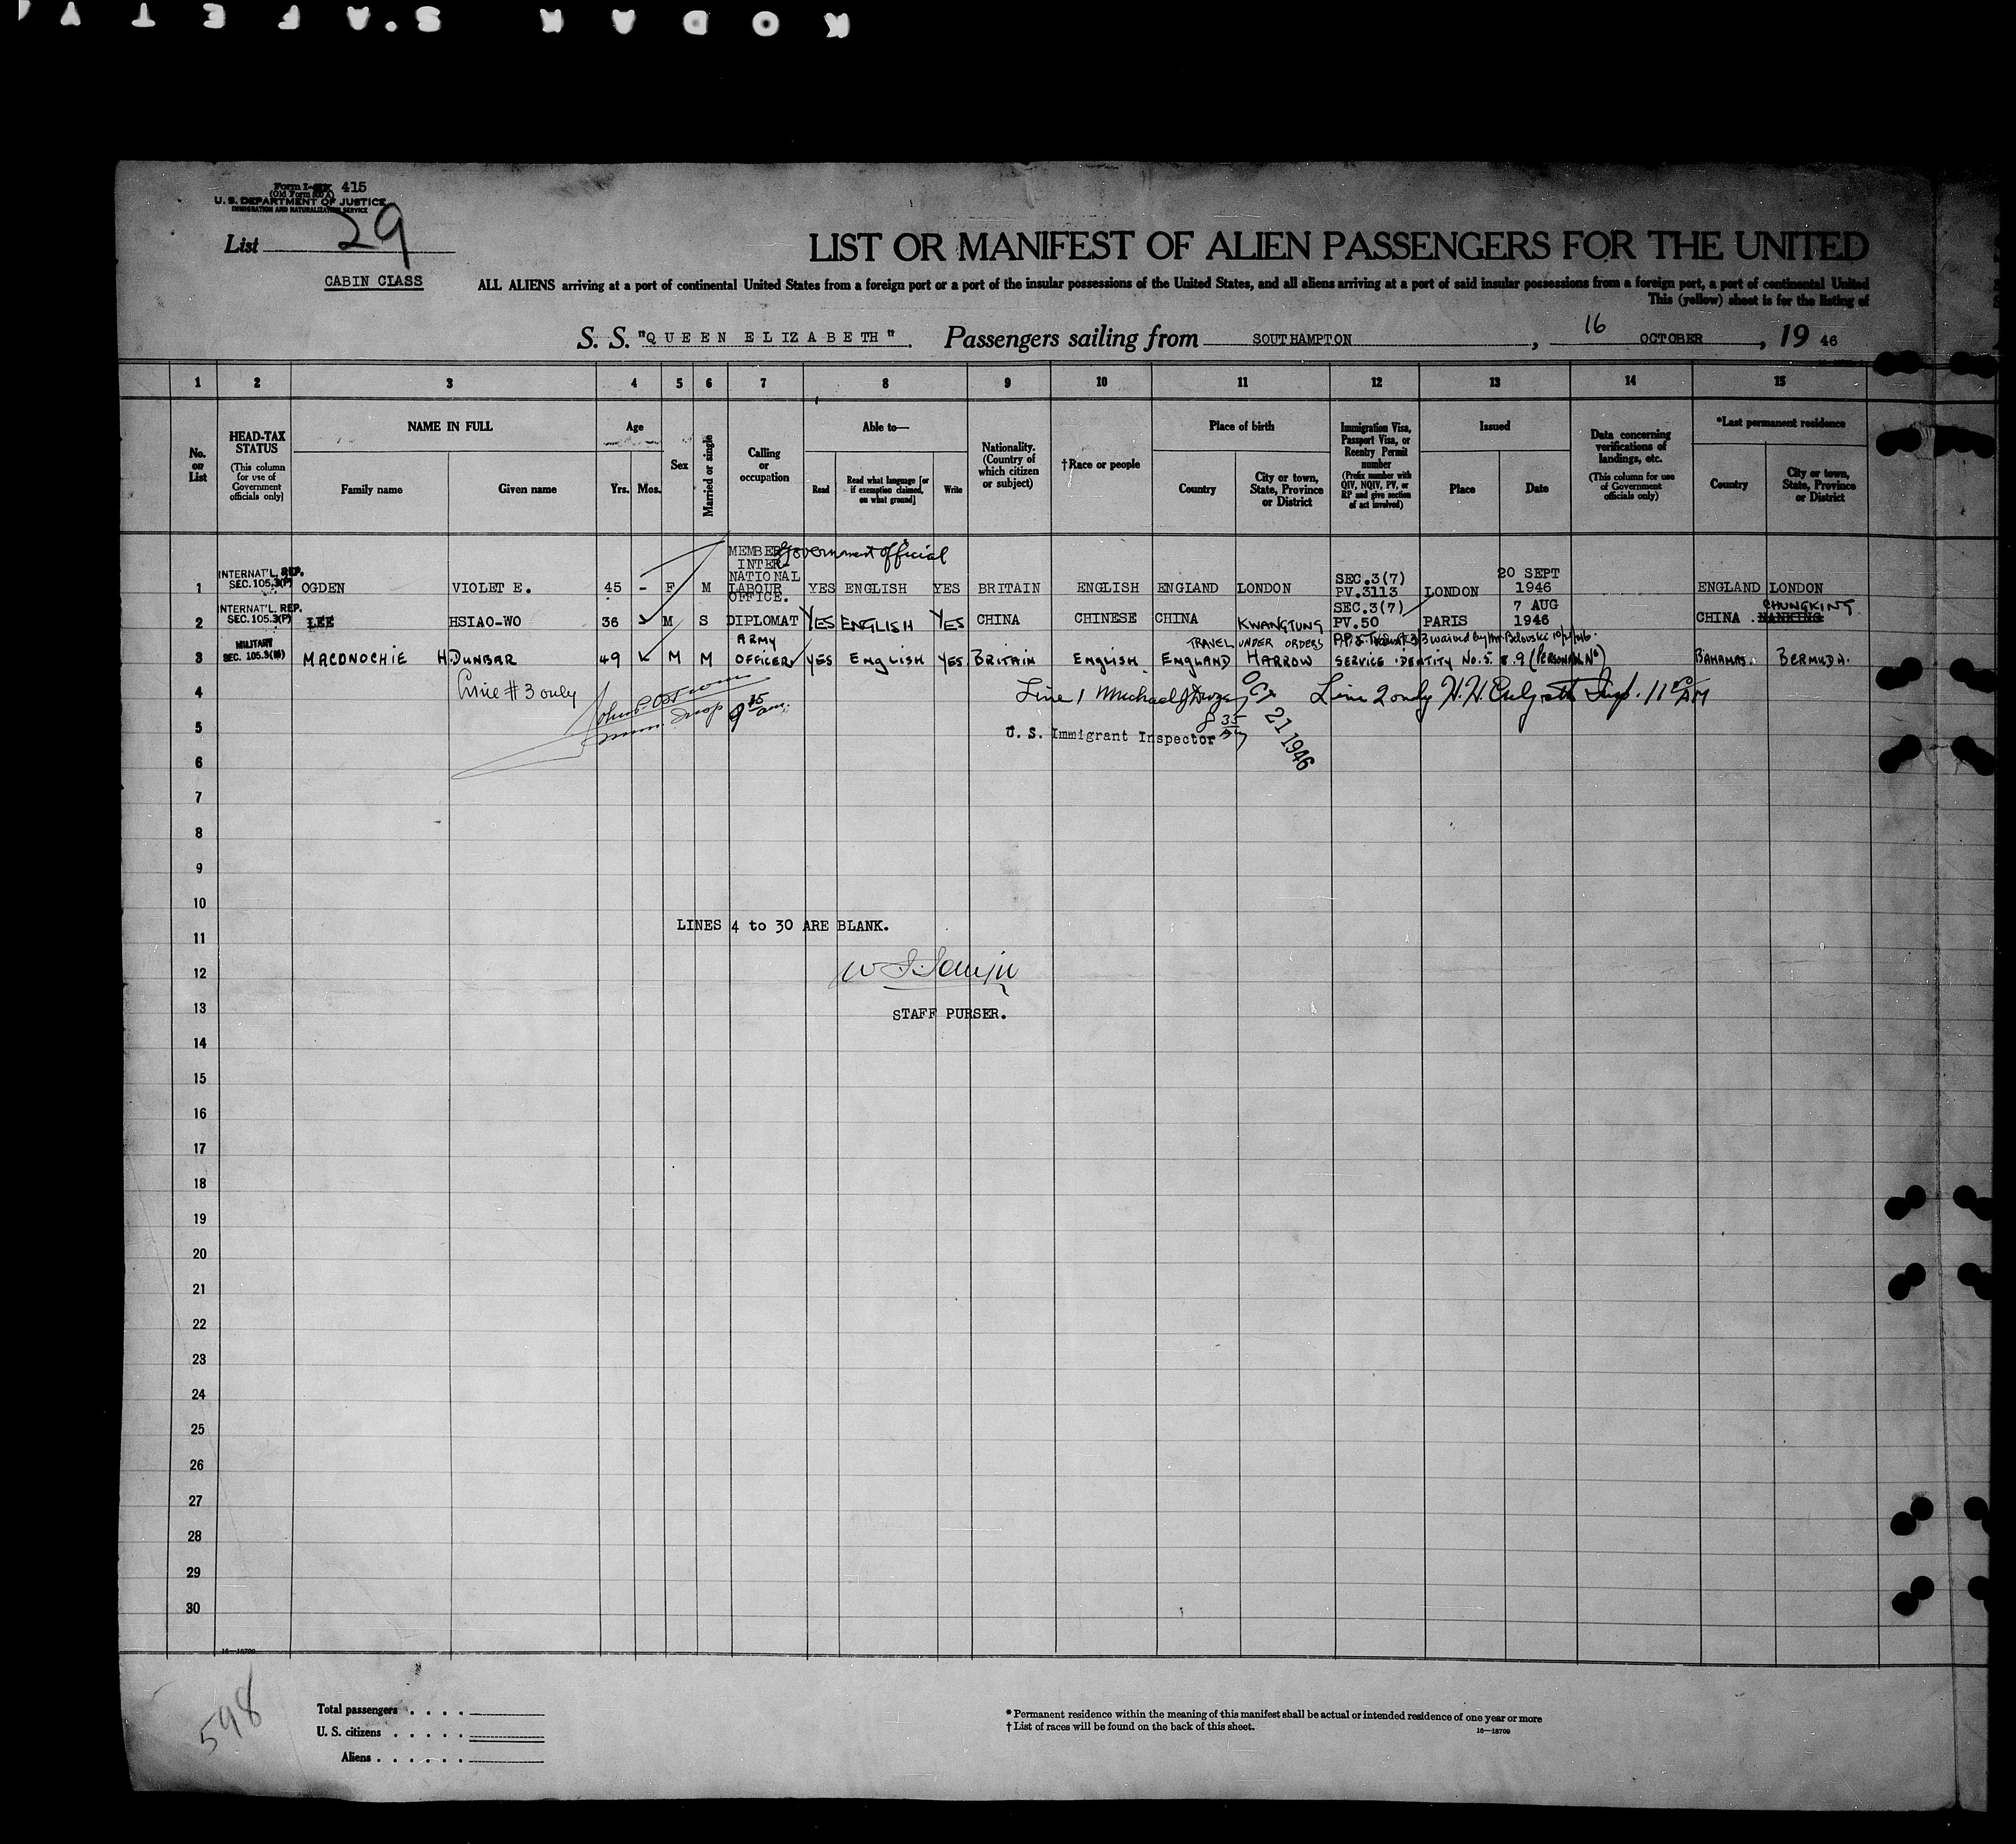 KODAK SAFETY
Form I- 415
(Old Form 500 A)
U. S. DEPARTMENT OF JUSTICE
IMMIGRATION AND NATURALIZATION SERVICE
List 29
CABIN CLASS
LIST OR MANIFEST OF ALIEN PASSENGERS FOR THE UNITED
ALL ALIENS arriving at a port of continental United States from a foreign port or a port of the insular possessions of the United States, and all aliens arriving at a port of said insular possessions from a foreign port, a port of continental United
This (yellow) sheet is for the listing of
S. S. "QUEEN ELIZABETH". Passengers sailing from SOUTHAMPTON, 16 OCTOBER, 19 46
1 2 3 4 5 6 7 8 9 10 11 12 13 14 15
No. on List
HEAD-TAX STATUS
(This column for use of Government officials only)
NAME IN FULL
Family name
Given name
Age
Yrs. Mos.
Sex
Married or single
Calling or occupation
Able to—
Read
Read what language [or if exemption claimed, on what ground]
Write
Nationality. (Country of which citizen or subject)
†Race or people
Place of birth
Country
City or town, State, Province or District
Immigration Visa, Passport Visa, or Reentry Permit number
(Prefix number with QIV, NQIV, PV, or RP and give section of act involved)
Issued
Place
Date
Data concerning verifications of landings, etc.
(This column for use of Government officials only)
*Last permanent residence
Country
City or town, State, Province or District
1 INTERNAT'L. REP. SEC. 105.3(P) OGDEN VIOLET E. 45 - F M MEMBER INTER-NATIONAL LABOUR OFFICE. Government official YES ENGLISH YES BRITAIN ENGLISH ENGLAND LONDON SEC.3(7) PV.3113 LONDON 20 SEPT 1946 ENGLAND LONDON
2 INTERNAT'L. REP. SEC. 105.3(P) LEE HSIAO-WO 36 M S DIPLOMAT YES ENGLISH YES CHINA CHINESE CHINA KWANGTUNG SEC.3(7) PV.50 PARIS 7 AUG 1946 CHINA CHUNGKING NANKING
TRAVEL UNDER ORDERS
3 MILITARY SEC. 105.3(M) MACONOCHIE H.DUNBAR 49 M M ARMY OFFICER YES ENGLISH YES BRITAIN ENGLISH ENGLAND HARROW SERVICE IDENTITY No. (PERSONAL No) BAHAMAS. BERMUDA.
4 Line #3 only Line 1 Michael J Line 2 only H. H. Insp. 11 AM
9 15 am.
5 U. S. Immigrant Inspector 8 35 OCT 21 1946
6
7
8
9
10
LINES 4 to 30 ARE BLANK.
11
12
13 STAFF PURSER.
14
15
16
17
18
19
20
21
22
23
24
25
26
27
28
29
30
16—18709
598
Total passengers . . . .
U. S. citizens . . . . .
Aliens . . . . . .
* Permanent residence within the meaning of this manifest shall be actual or intended residence of one year or more
† List of races will be found on the back of this sheet.
16—18709